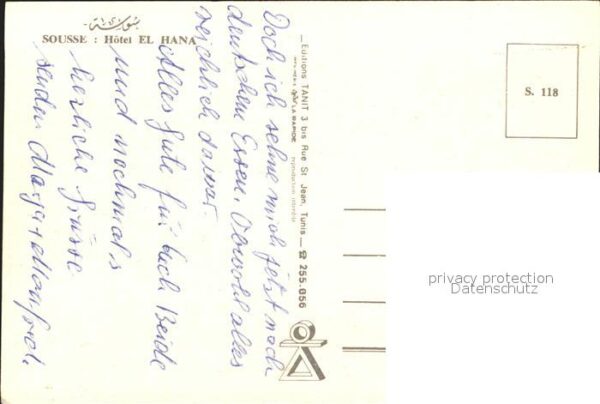 سوسة
SOUSSE : Hôtel EL HANA
Doch ich sehne mich jetzt nach
deutschem Essen. Obwohl alles
reichlich da war.
Alles Gute für Euch Beide
und nochmal's
herzliche Grüsse
senden Marga + Manfred.
— Editions TANIT 3 bis Rue St Jean, Tunis — ☎ 255.056
LA RAPIDE
reproduction interdite
S. 118
privacy protection
Datenschutz